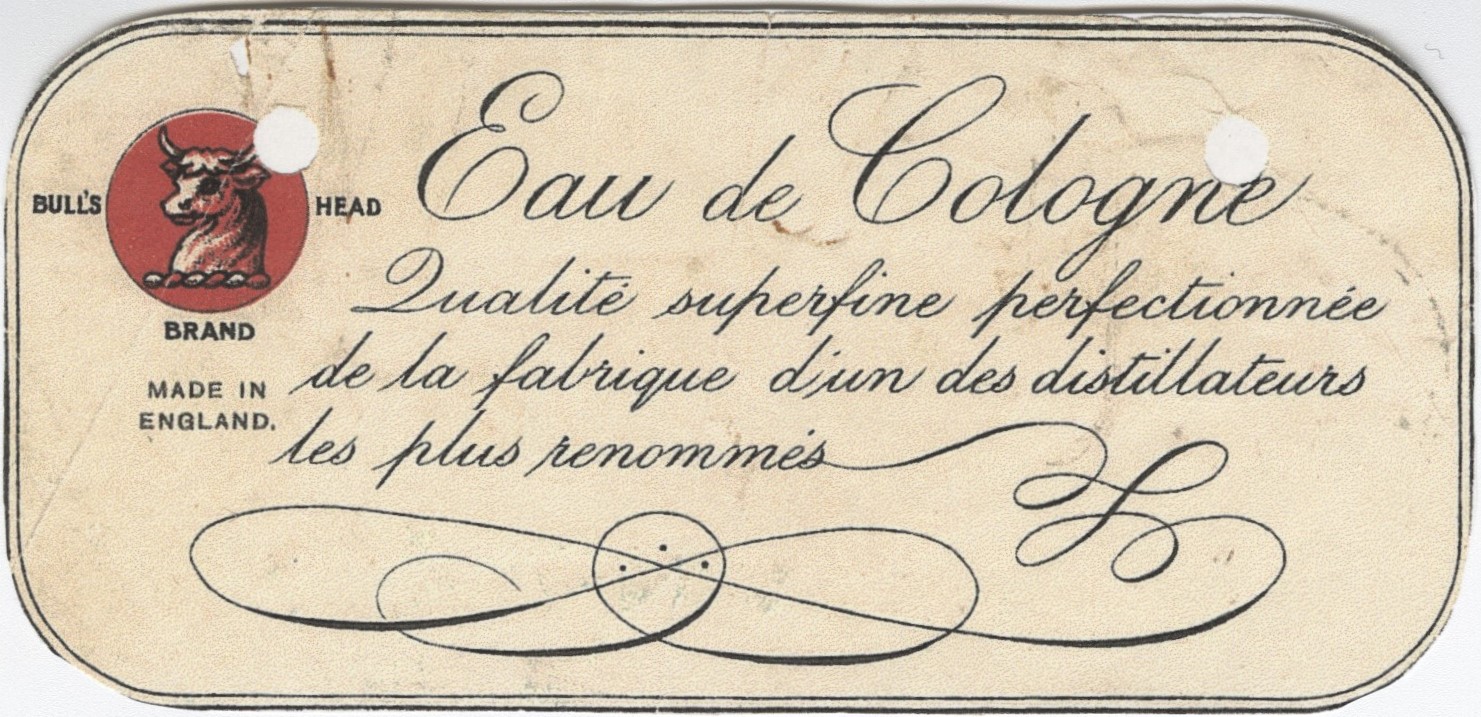 BULL'S HEAD
BRAND
MADE IN
ENGLAND.
Eau de Cologne
Qualité superfine perfectionnée
de la fabrique d'un des distillateurs
les plus renommés